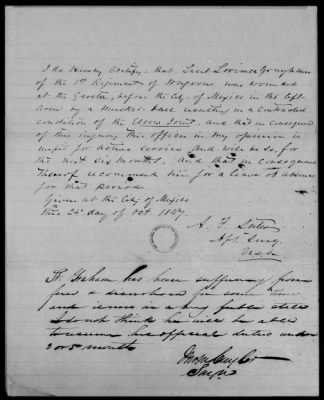 I do Hereby Certify, that Lieut Lorimer Graham
of the 1st Regiment of Dragoons was wounded
at the Garita, before the City of Mexico in the left
arm by a Musket-ball resulting in a contracted
condition of the Elbow Joint, and that in consequence
of this injury this officer in my opinion is
unfit for active service and will be so, for
the next six months. And that in consequence
thereof recommend him for a leave of absence
for that period
Given at the City of Mexico
this 24th day of Oct. 1847.
A. F. Suter
Ast. Surg.
U.S.A.
Lt. Graham has been suffering from
fever & diarrhoea for some time
and is now in a very feeble state
I do not think he will be able
to resume his official duties under
3 or 5 months
Surgn